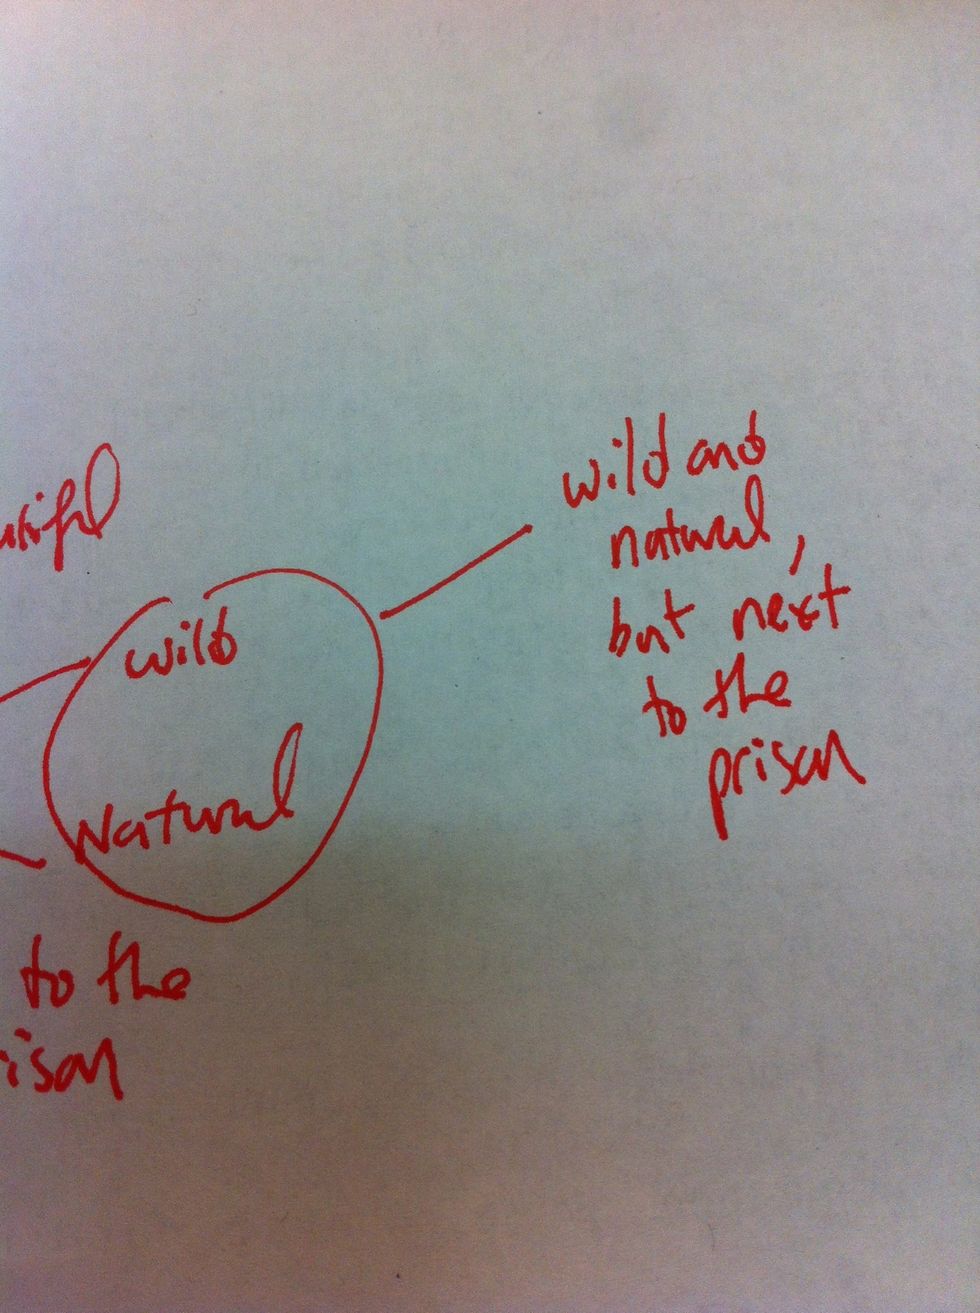 wild and
natural,
but next
to the
prison
wild
Natural
to the